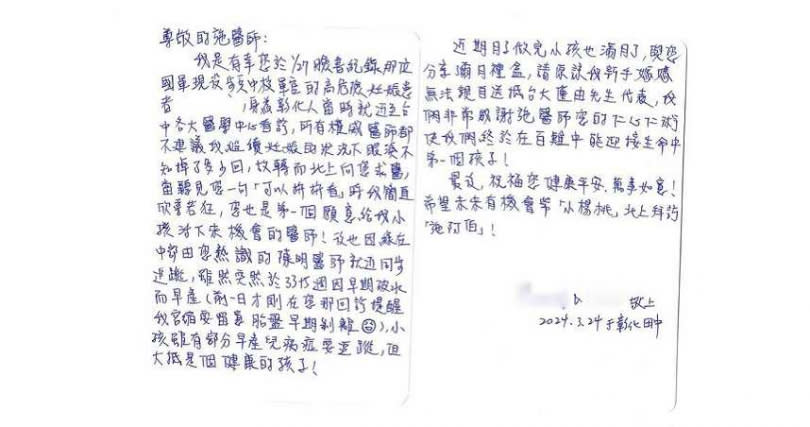 尊敬的施醫師：
我是有幸您於1/27臉書記錄那位
國軍現役少校軍官的高危險妊娠患
者 身為彰化人當時就近至台
中各大醫學中心看診，所有權威醫師都
不建議我繼續妊娠的狀況下眼淚不
知掉了多少回，故轉而北上向您求醫，
當聽見您一句「可以拚拚看」時我簡直
欣喜若狂，您也是第一個願意給我小
孩活下來機會的醫師！後也因緣在
中部由您熟識的陳明醫師就近同步
追蹤，雖然突然於33+5週因早期破水
而早產（前一日才剛在您那回診提醒
我宮縮要留意胎盤早期剝離），小
孩雖有部分早產兒病症要追蹤，但
大抵是個健康的孩子！
近期月子做完小孩也滿月了，與您
分享彌月禮盒，請原諒我新手媽媽
無法親自送抵台大僅由先生代表，我
們非常感謝施醫師您的仁心仁術
使我們終於在百難中能迎接生命中
第一個孩子！
最後，祝福您健康平安、萬事如意！
希望未來有機會帶「小楊桃」北上拜訪
「施阿伯」！
敬上
2024.3.24于彰化田中